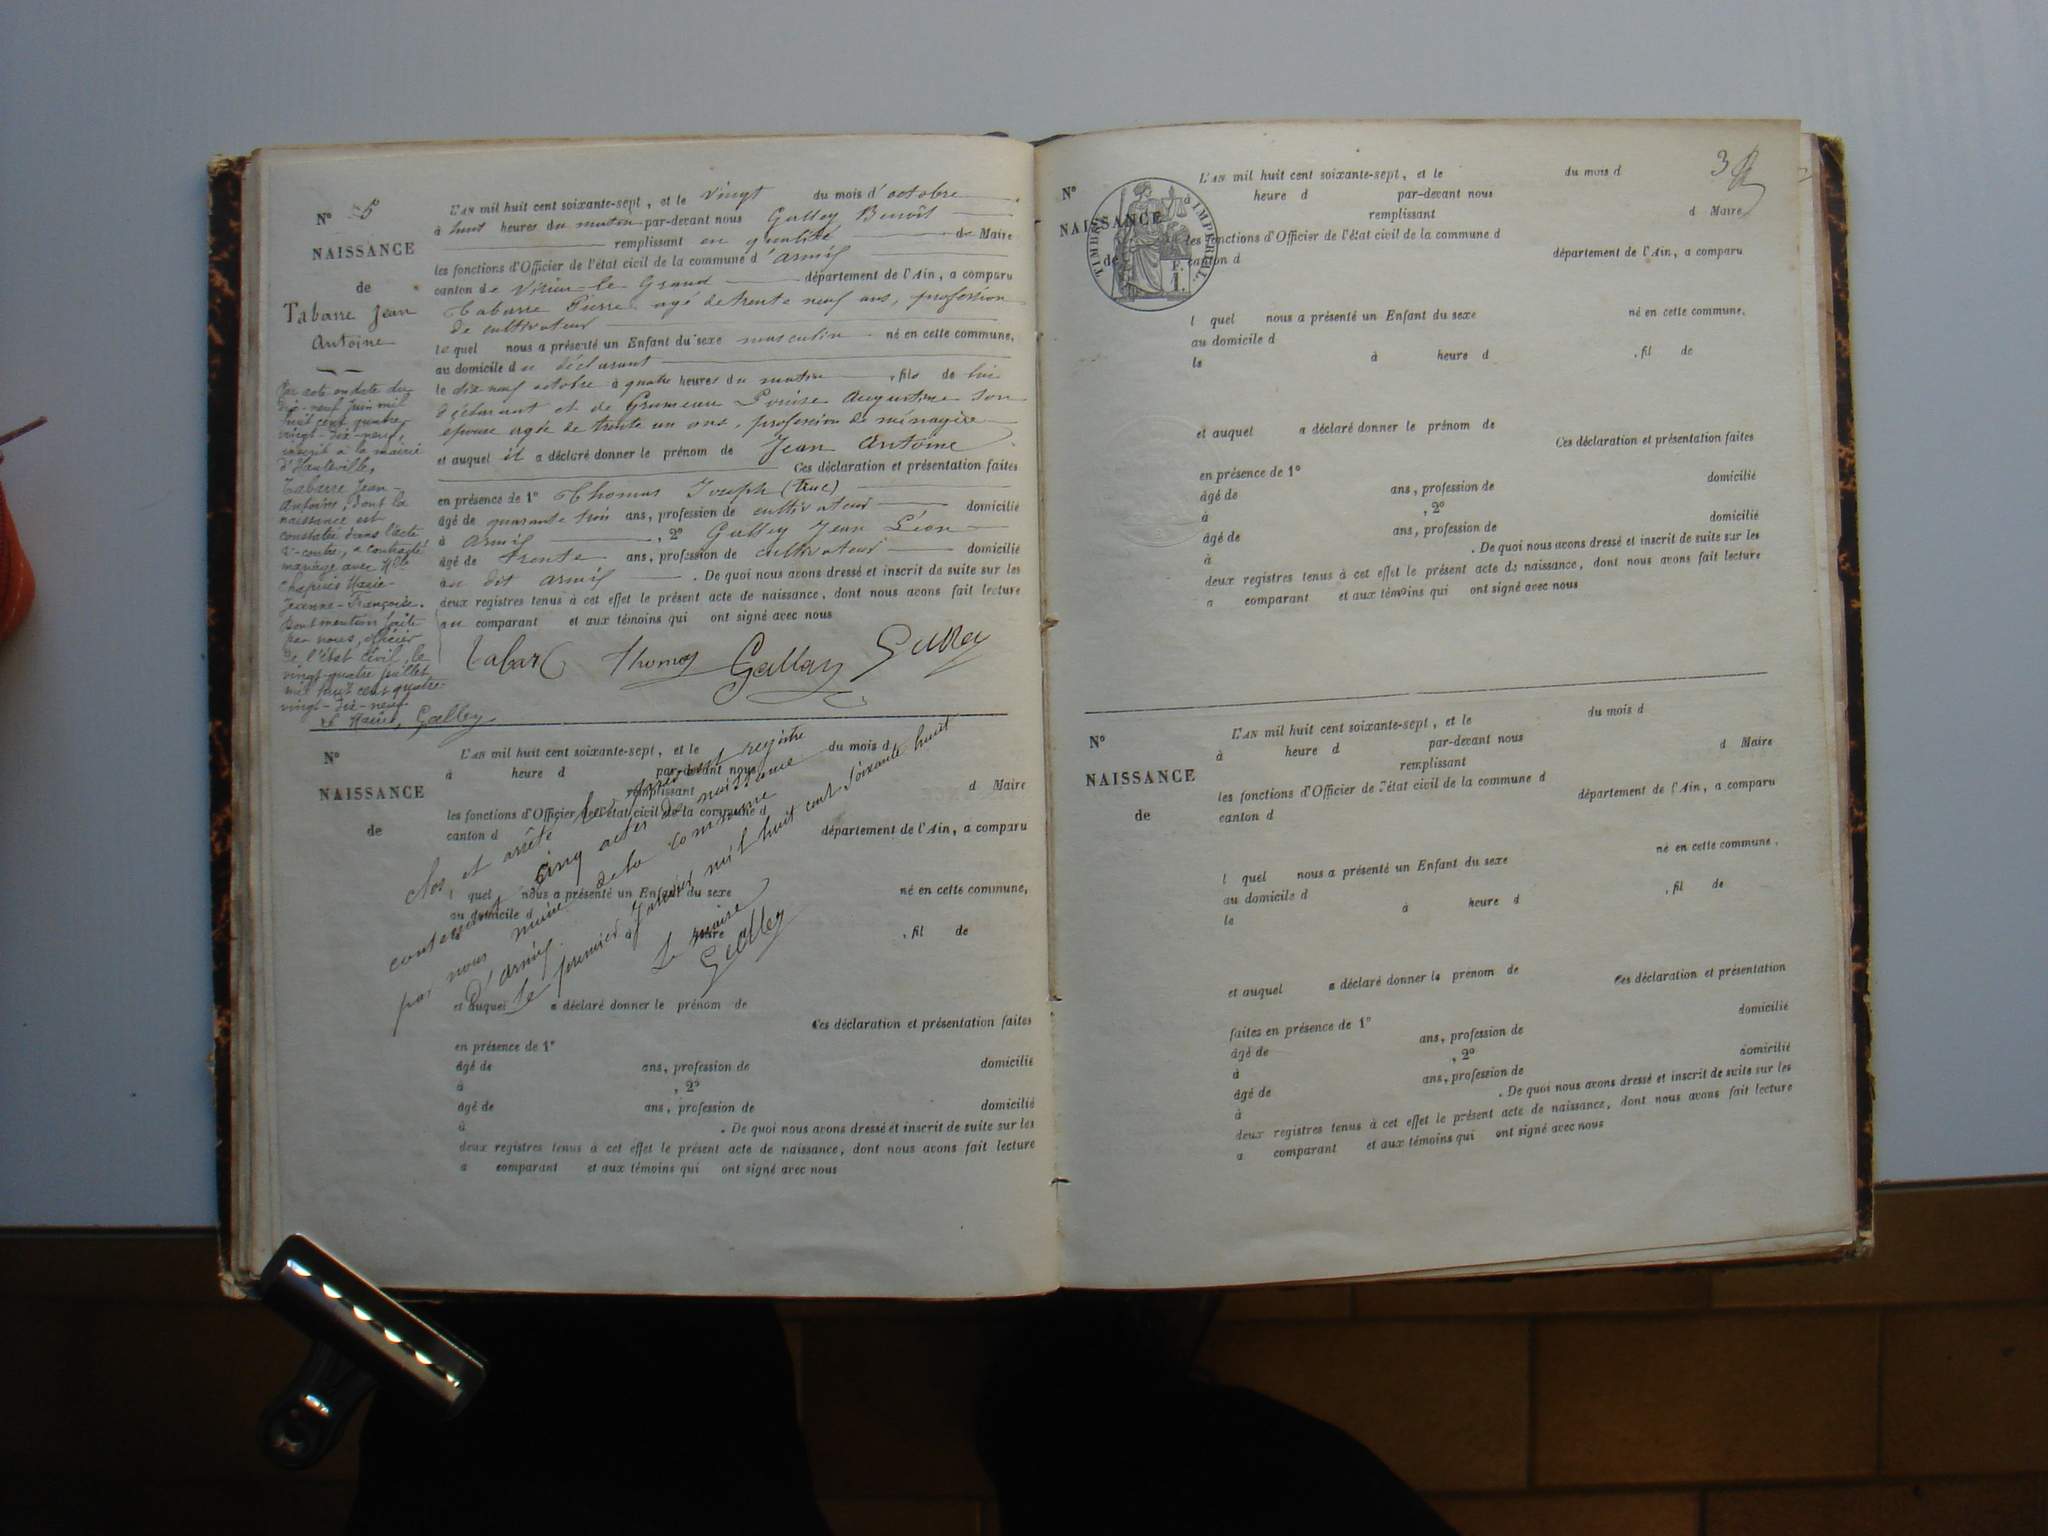 N° 5
NAISSANCE
de
Tabarre Jean
Antoine
Par acte en date du
dix-neuf juin mil
huit cent quatre
vingt-dix-neuf,
inscrit à la mairie
d'Hauteville,
Tabarre Jean-
Antoine, dont la
naissance est
constatée dans l'acte
ci-contre, a contracté
mariage avec Mlle
Chapuis Marie-
Jeanne-Françoise.
Dont mention faite
par nous, officier
de l'état civil, le
vingt-quatre juillet
mil huit cent quatre-
vingt-dix-neuf
Le Maire, Galley
L'AN mil huit cent soixante-sept, et le vingt du mois d'octobre
à huit heures du matin par-devant nous Galley Benoît
remplissant en qualité de Maire
les fonctions d'Officier de l'état civil de la commune d'armix
canton de Virieu-le Grand département de l'Ain, a comparu
Tabarre Pierre agé de trente neuf ans, profession
de cultivateur
lequel nous a présenté un Enfant du sexe masculin né en cette commune,
au domicile du déclarant
le dix neuf octobre à quatre heures du matin, fils de lui
déclarant et de Grumeau Louise Augustine son
epouse agée de trente un ans, profession de ménagère
et auquel il a déclaré donner le prénom de Jean Antoine
Ces déclaration et présentation faites
en présence de 1° Thomas Joseph (truc)
âgé de quarante trois ans, profession de cultivateur domicilié
à armix, 2° Galley Jean Léon
âgé de trente ans, profession de cultivateur domicilié
au dit armix. De quoi nous avons dressé et inscrit de suite sur les
deux registres tenus à cet effet le présent acte de naissance, dont nous avons fait lecture
au comparant et aux témoins qui ont signé avec nous
Tabar Thomas Galley Galley
N°
NAISSANCE
de
L'AN mil huit cent soixante-sept, et le du mois d
à heure d par-devant nous
remplissant d Maire
les fonctions d'Officier de l'état civil de la commune d
canton d département de l'Ain, a comparu
l quel nous a présenté un Enfant du sexe né en cette commune,
au domicile d
à heure d, fil de
et auquel a déclaré donner le prénom de
Ces déclaration et présentation faites
en présence de 1°
âgé de ans, profession de domicilié
à , 2°
âgé de ans, profession de domicilié
à . De quoi nous avons dressé et inscrit de suite sur les
deux registres tenus à cet effet le présent acte de naissance, dont nous avons fait lecture
a comparant et aux témoins qui ont signé avec nous
Clos et arrêté le présent registre
contenant cinq actes de naissance
par nous maire de la commune
d'armix
Le premier Janvier mil huit cent soixante huit
Le maire
Galley
3
N°
NAISSANCE
de
TIMBRE IMPERIAL
F.
1.
L'AN mil huit cent soixante-sept, et le du mois d
à heure d par-devant nous
remplissant d Maire
les fonctions d'Officier de l'état civil de la commune d
canton d département de l'Ain, a comparu
l quel nous a présenté un Enfant du sexe né en cette commune,
au domicile d
le à heure d , fil de
et auquel a déclaré donner le prénom de
Ces déclaration et présentation faites
en présence de 1°
âgé de ans, profession de domicilié
à , 2°
âgé de ans, profession de domicilié
à . De quoi nous avons dressé et inscrit de suite sur les
deux registres tenus à cet effet le présent acte de naissance, dont nous avons fait lecture
a comparant et aux témoins qui ont signé avec nous
N°
NAISSANCE
de
L'AN mil huit cent soixante-sept, et le du mois d
à heure d par-devant nous
remplissant d Maire
les fonctions d'Officier de l'état civil de la commune d
canton d département de l'Ain, a comparu
l quel nous a présenté un Enfant du sexe né en cette commune,
au domicile d
le à heure d , fil de
et auquel a déclaré donner le prénom de
Ces déclaration et présentation
faites en présence de 1°
âgé de ans, profession de domicilié
à , 2°
âgé de ans, profession de domicilié
à . De quoi nous avons dressé et inscrit de suite sur les
deux registres tenus à cet effet le présent acte de naissance, dont nous avons fait lecture
a comparant et aux témoins qui ont signé avec nous